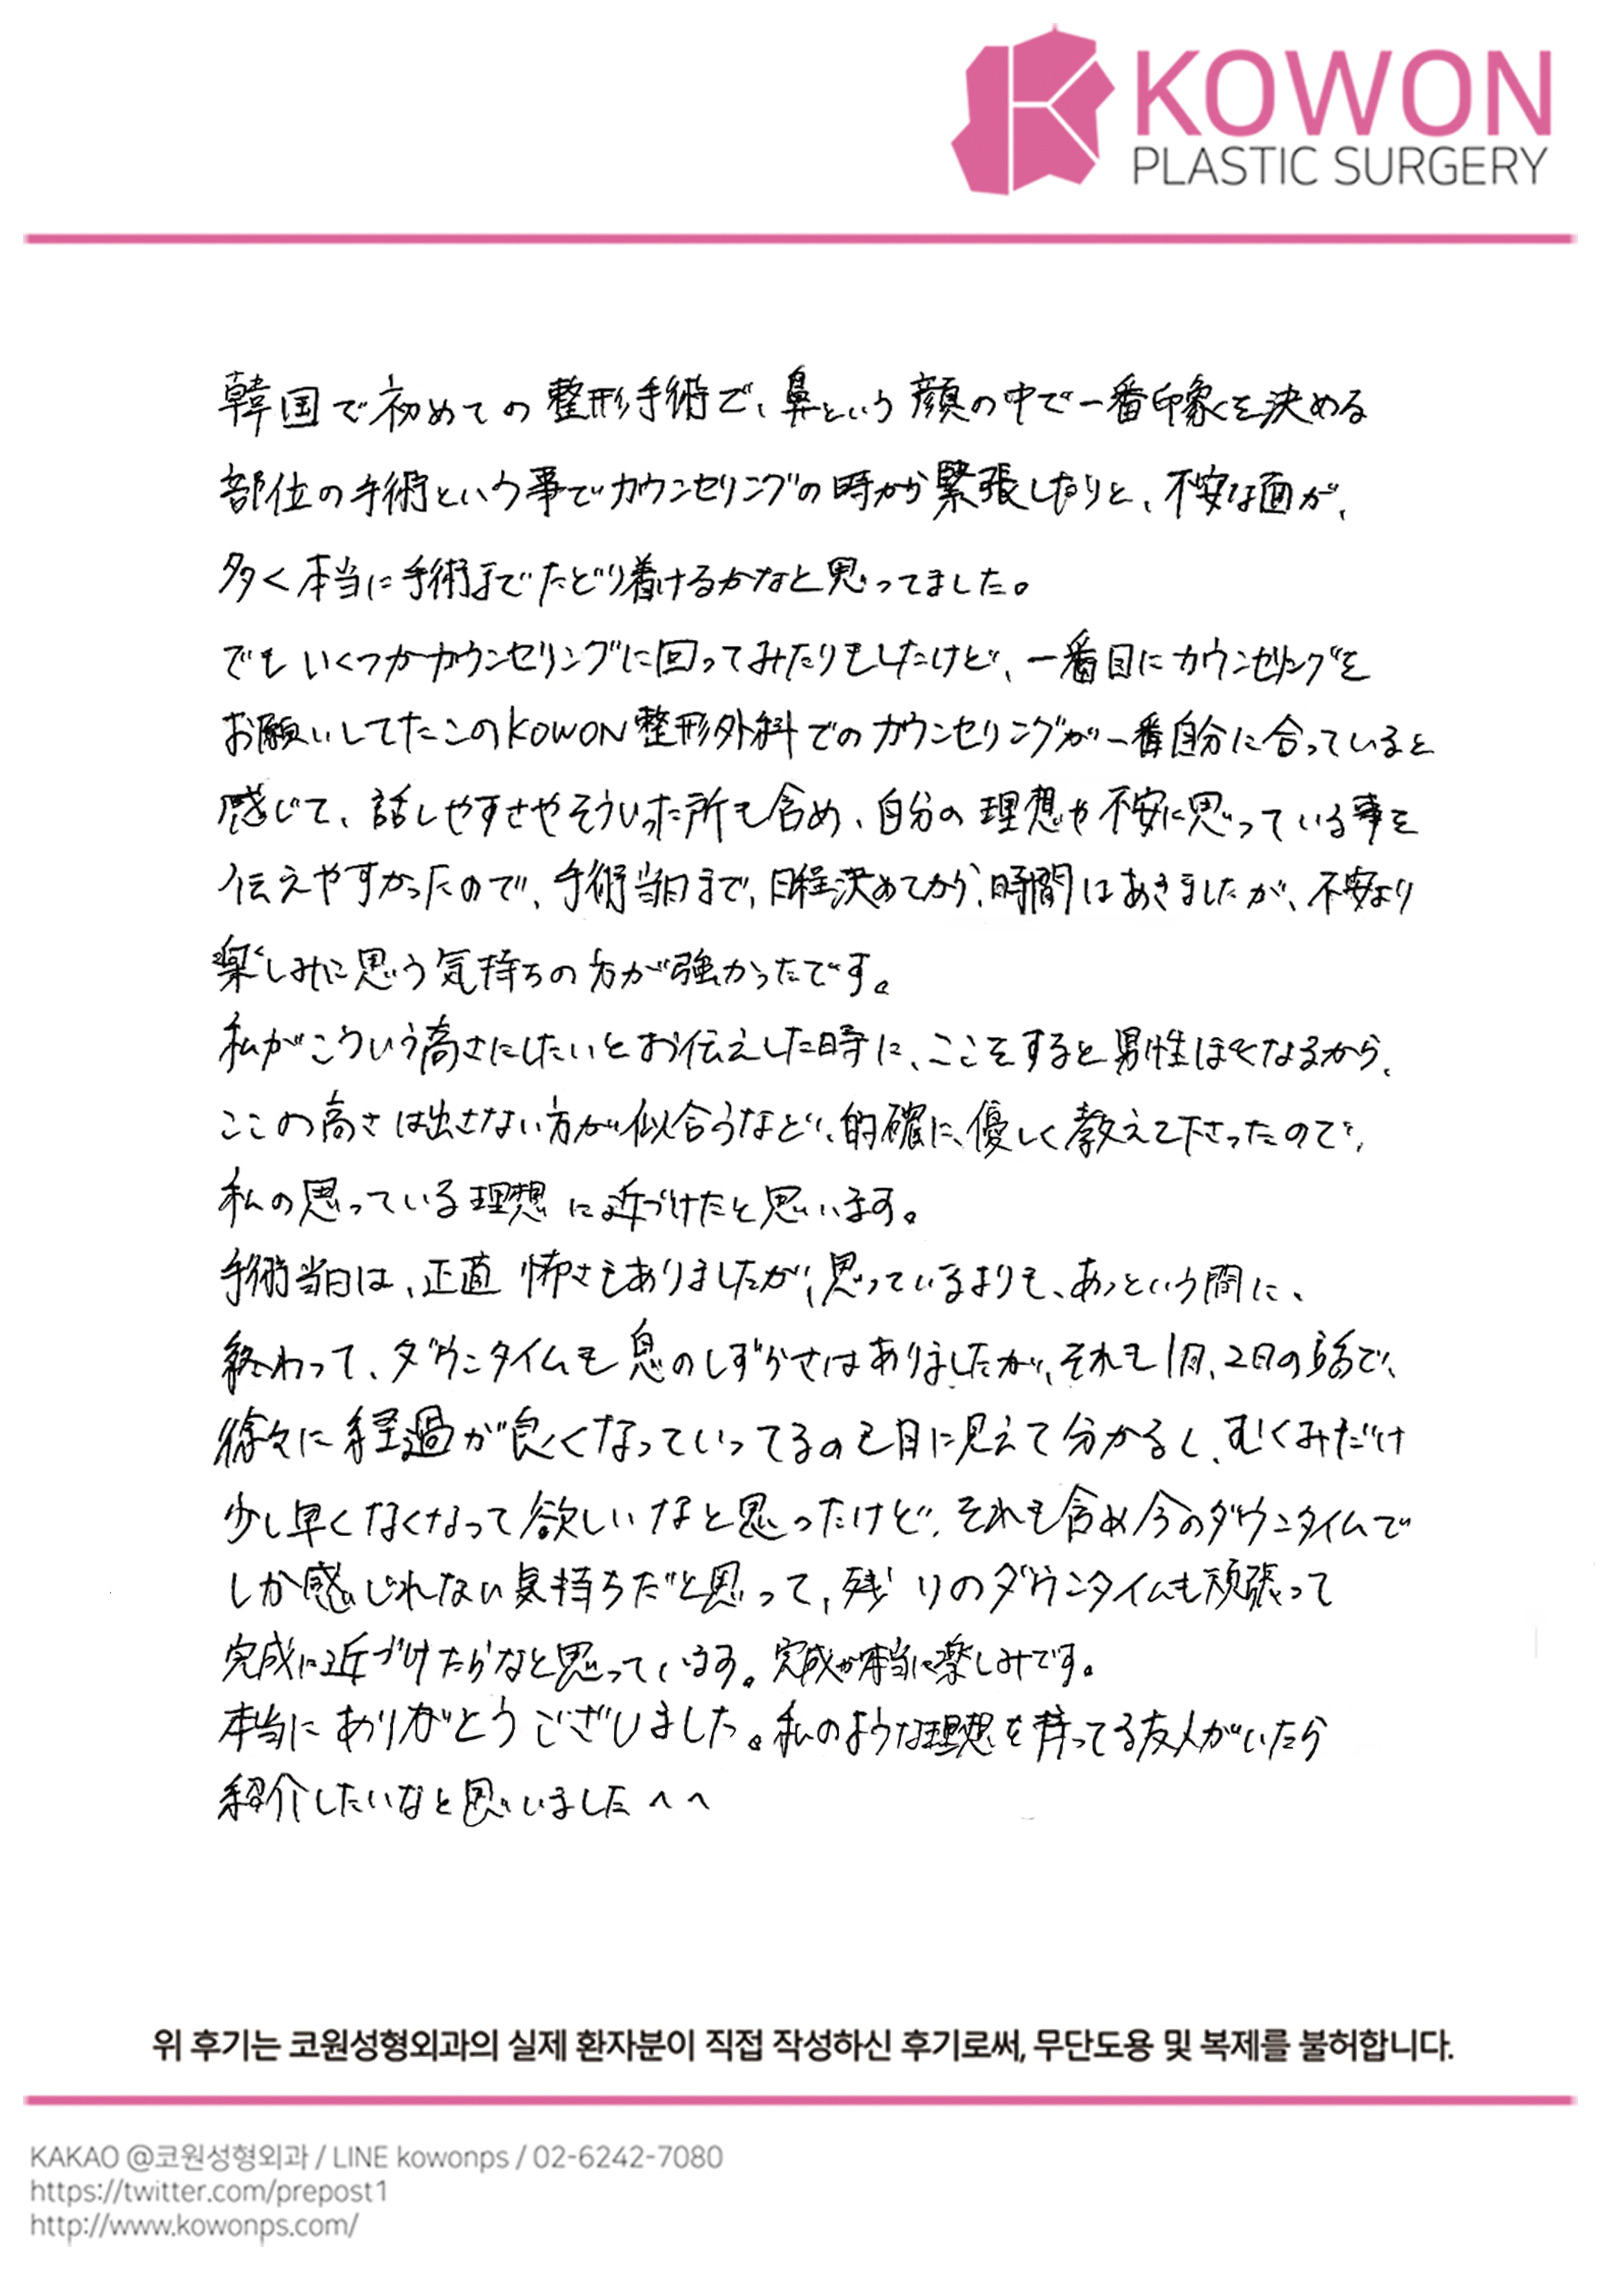 KOWON
PLASTIC SURGERY
韓国で初めての整形手術で、鼻という顔の中で一番印象を決める
部位の手術という事でカウンセリングの時から緊張したりと、不安な面が、
多く本当に手術までたどり着けるかなと思ってました。
でもいくつかカウンセリングに回ってみたりもしたけど、一番目にカウンセリングを
お願いしてたこのKOWON整形外科でのカウンセリングが一番自分に合っていると
感じて、話しやすさやそういった所も含め、自分の理想や不安に思っている事を
伝えやすかったので、手術当日まで、日程決めてから、時間はあきましたが、不安より
楽しみに思う気持ちの方が強かったです。
私がこういう高さにしたいとお伝えした時に、ここをすると男性ぽくなるから、
ここの高さは出さない方が似合うなど、的確に、優しく教えて下さったので、
私の思っている理想に近づけたと思います。
手術当日は、正直怖さもありましたが、思っているよりも、あっという間に、
終わって、ダウンタイムも息のしずらさはありましたが、それも1日、2日の話で、
徐々に経過が良くなっていってるのも目に見えて分かるし、むくみだけ
少し早くなくなって欲しいなと思ったけど、それも含め今のダウンタイムで
しか感じれない気持ちだと思って、残りのダウンタイムも頑張って
完成に近づけたらなと思っています。完成が本当に楽しみです。
本当にありがとうございました。私のような理想を持ってる友人がいたら
紹介したいなと思いました^^
위 후기는 코원성형외과의 실제 환자분이 직접 작성하신 후기로써, 무단도용 및 복제를 불허합니다.
KAKAO @코원성형외과 / LINE kowonps / 02-6242-7080
https://twitter.com/prepost1
http://www.kowonps.com/